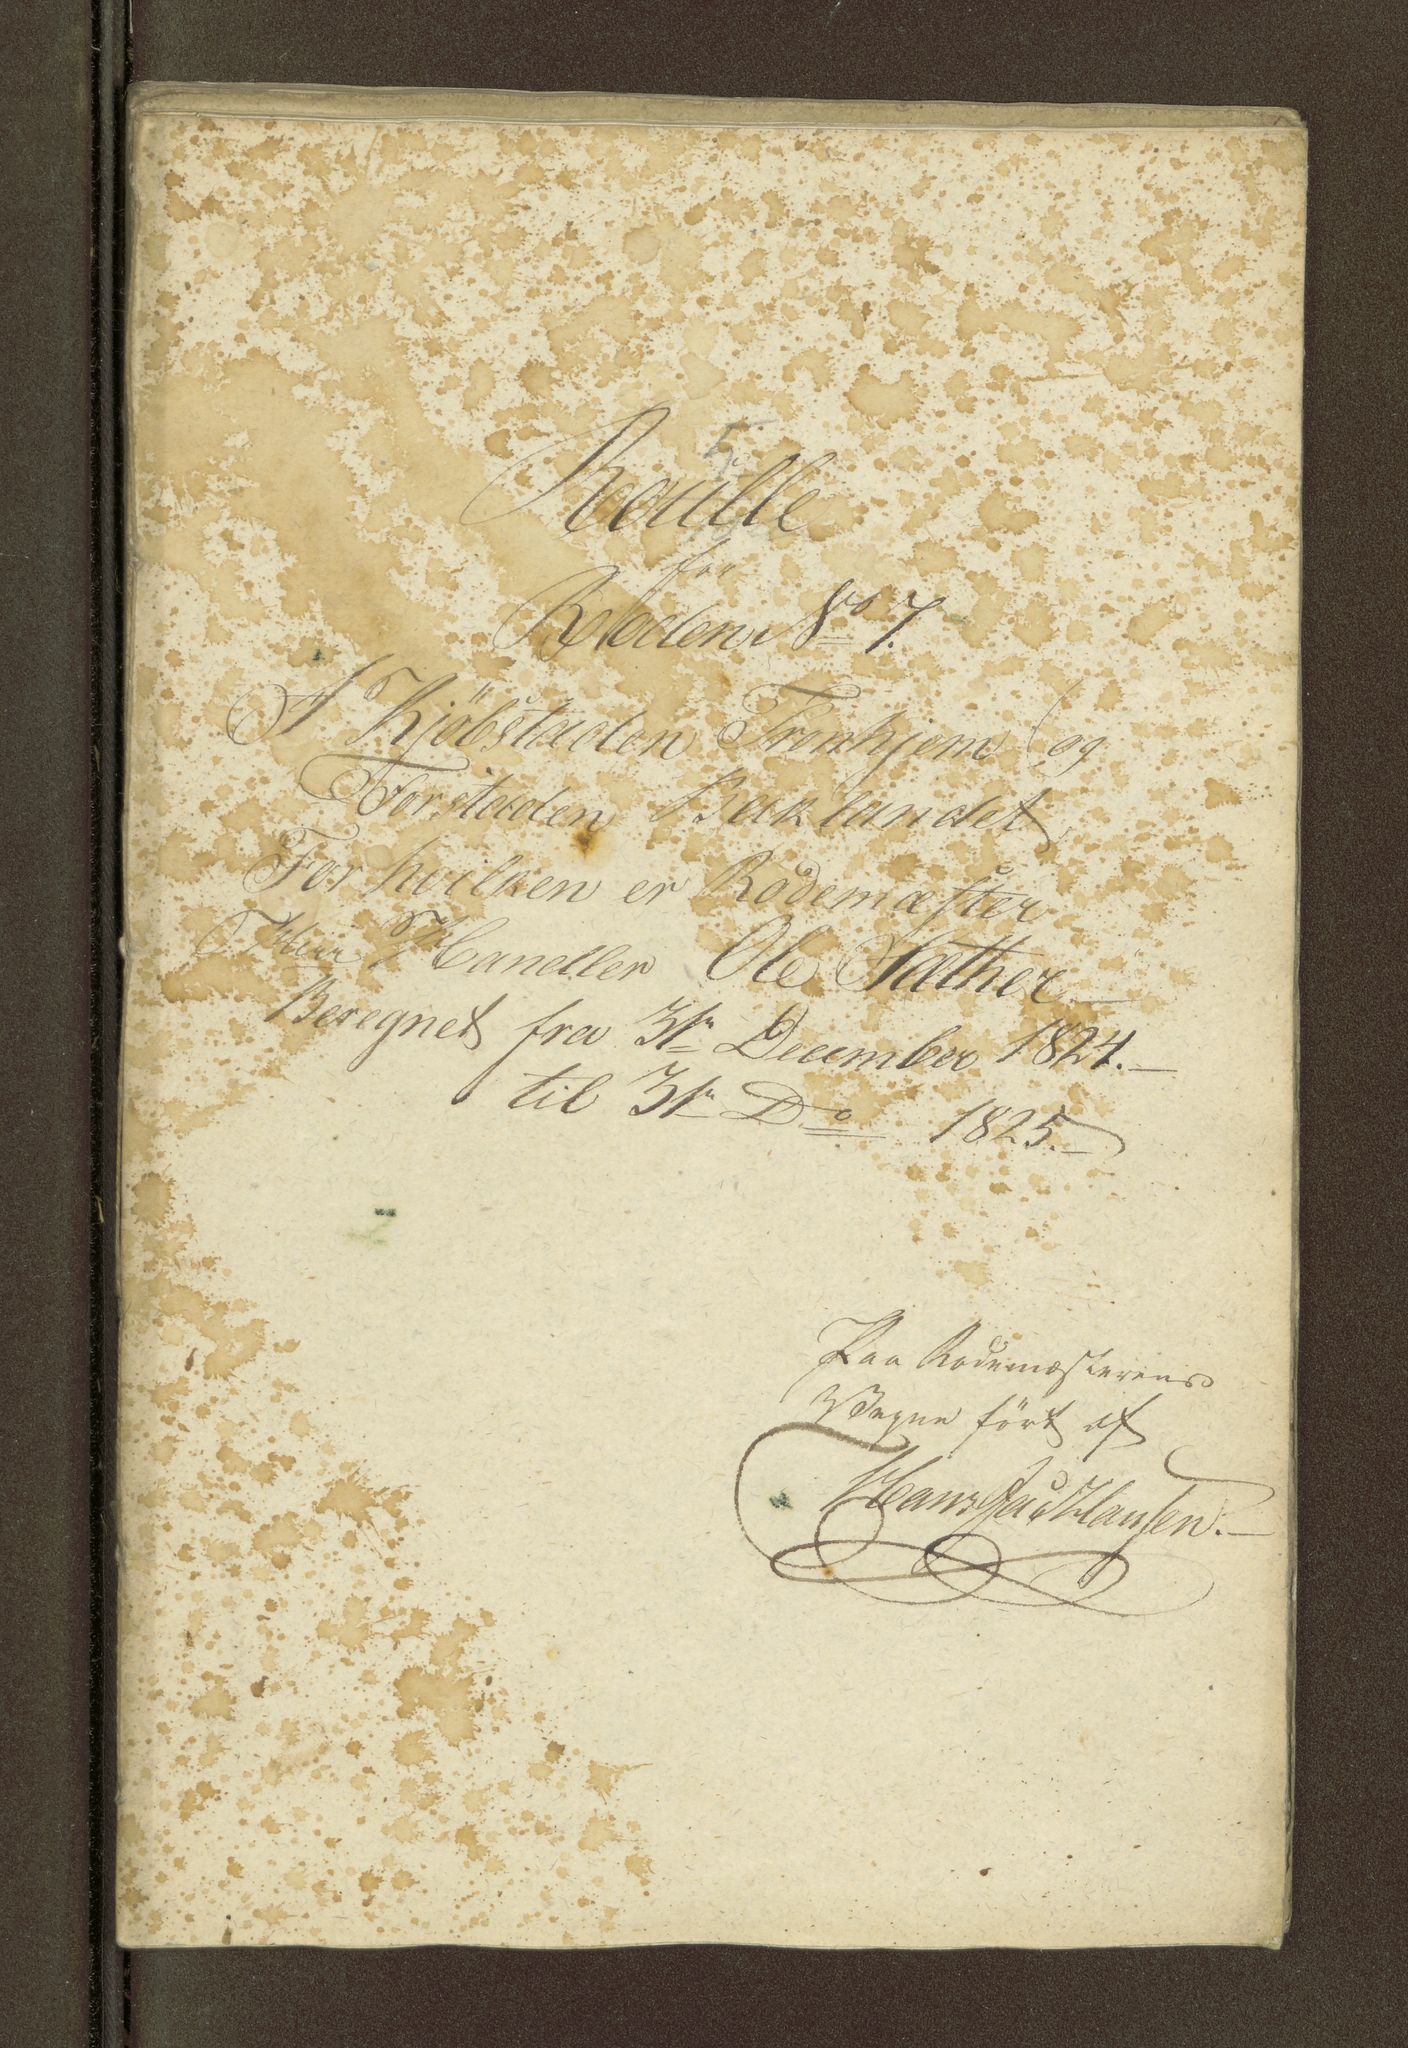 5
Roulle
for
Roden No 7.
I Kjöbstaden Tronhjem og
Forstaden Baklandet,
For hvilken er Rodemæster
Herr Handler Ole Sæther
Beregnet fra 31te December 1824.
til 31te Do 1825.
Paa Rodemæsterens
Vegne fört af
Hans Hansen.